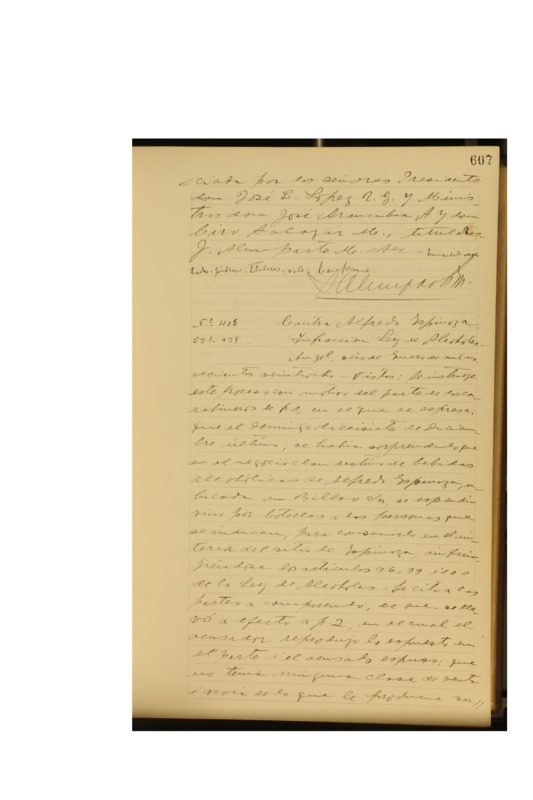 607
ciada por los señores Presidente
don José B. Lopez R. G. y Minis-
tros don José Arancibia A y don
Ciro Salazar M., titulares.
J. Alemparte M. Sec
Conforme
Nº 1108
Contra Alfredo Espinoza.
Infraccion Ley de Alcoholes.
Angol, seis de Enero de mil no-
vecientos veintiocho - Vistos: Se instruye
este proceso con motivo del parte de cara-
bineros de f. 1, en el que se espresa:
que el Domingo diecisiete de Diciem-
bre último, se habia sorprendido que
en el negocio clandestino de bebidas
alcohólicas de Alfredo Espinoza, u-
bicado en Billar se espendia
vino por botellas a las personas que
se indican, para consumirlo en el in-
terior del sitio de Espinoza, infrin-
jiéndose los artículos 96, 99 i 101
de la Ley de Alcoholes. Se citó a las
partes a comparendo, el que se lle-
vó a efecto a f. 2, en el cual el
acusador reprodujo lo espuesto en
el parte i el acusado espuso: que
no tenia ninguna clase de venta
i vivia de lo que le producia su